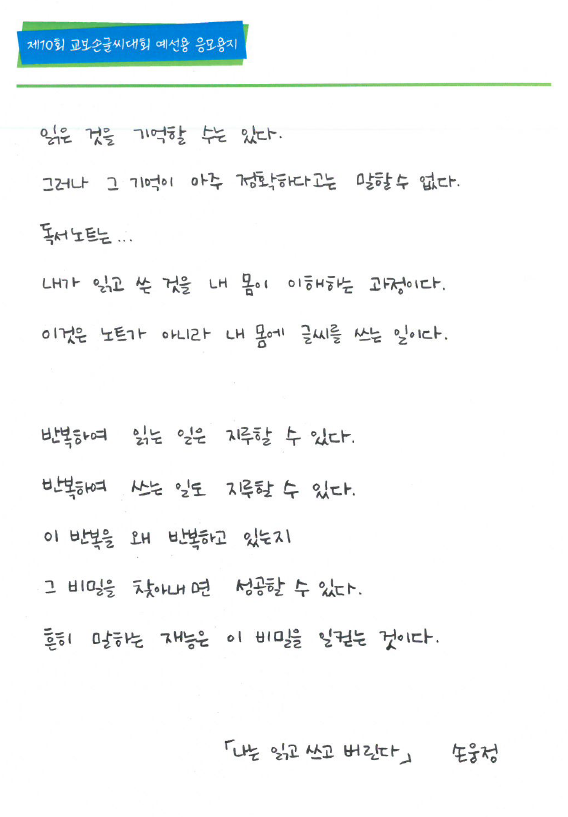 제10회 교보손글씨대회 예선용 응모용지
읽은 것을 기억할 수는 있다.
그러나 그 기억이 아주 정확하다고는 말할 수 없다.
독서노트는...
내가 읽고 쓴 것을 내 몸이 이해하는 과정이다.
이것은 노트가 아니라 내 몸에 글씨를 쓰는 일이다.
반복하여 읽는 일은 지루할 수 있다.
반복하여 쓰는 일도 지루할 수 있다.
이 반복을 왜 반복하고 있는지
그 비밀을 찾아내면 성공할 수 있다.
흔히 말하는 재능은 이 비밀을 일컫는 것이다.
「나는 읽고 쓰고 버린다」 손웅정